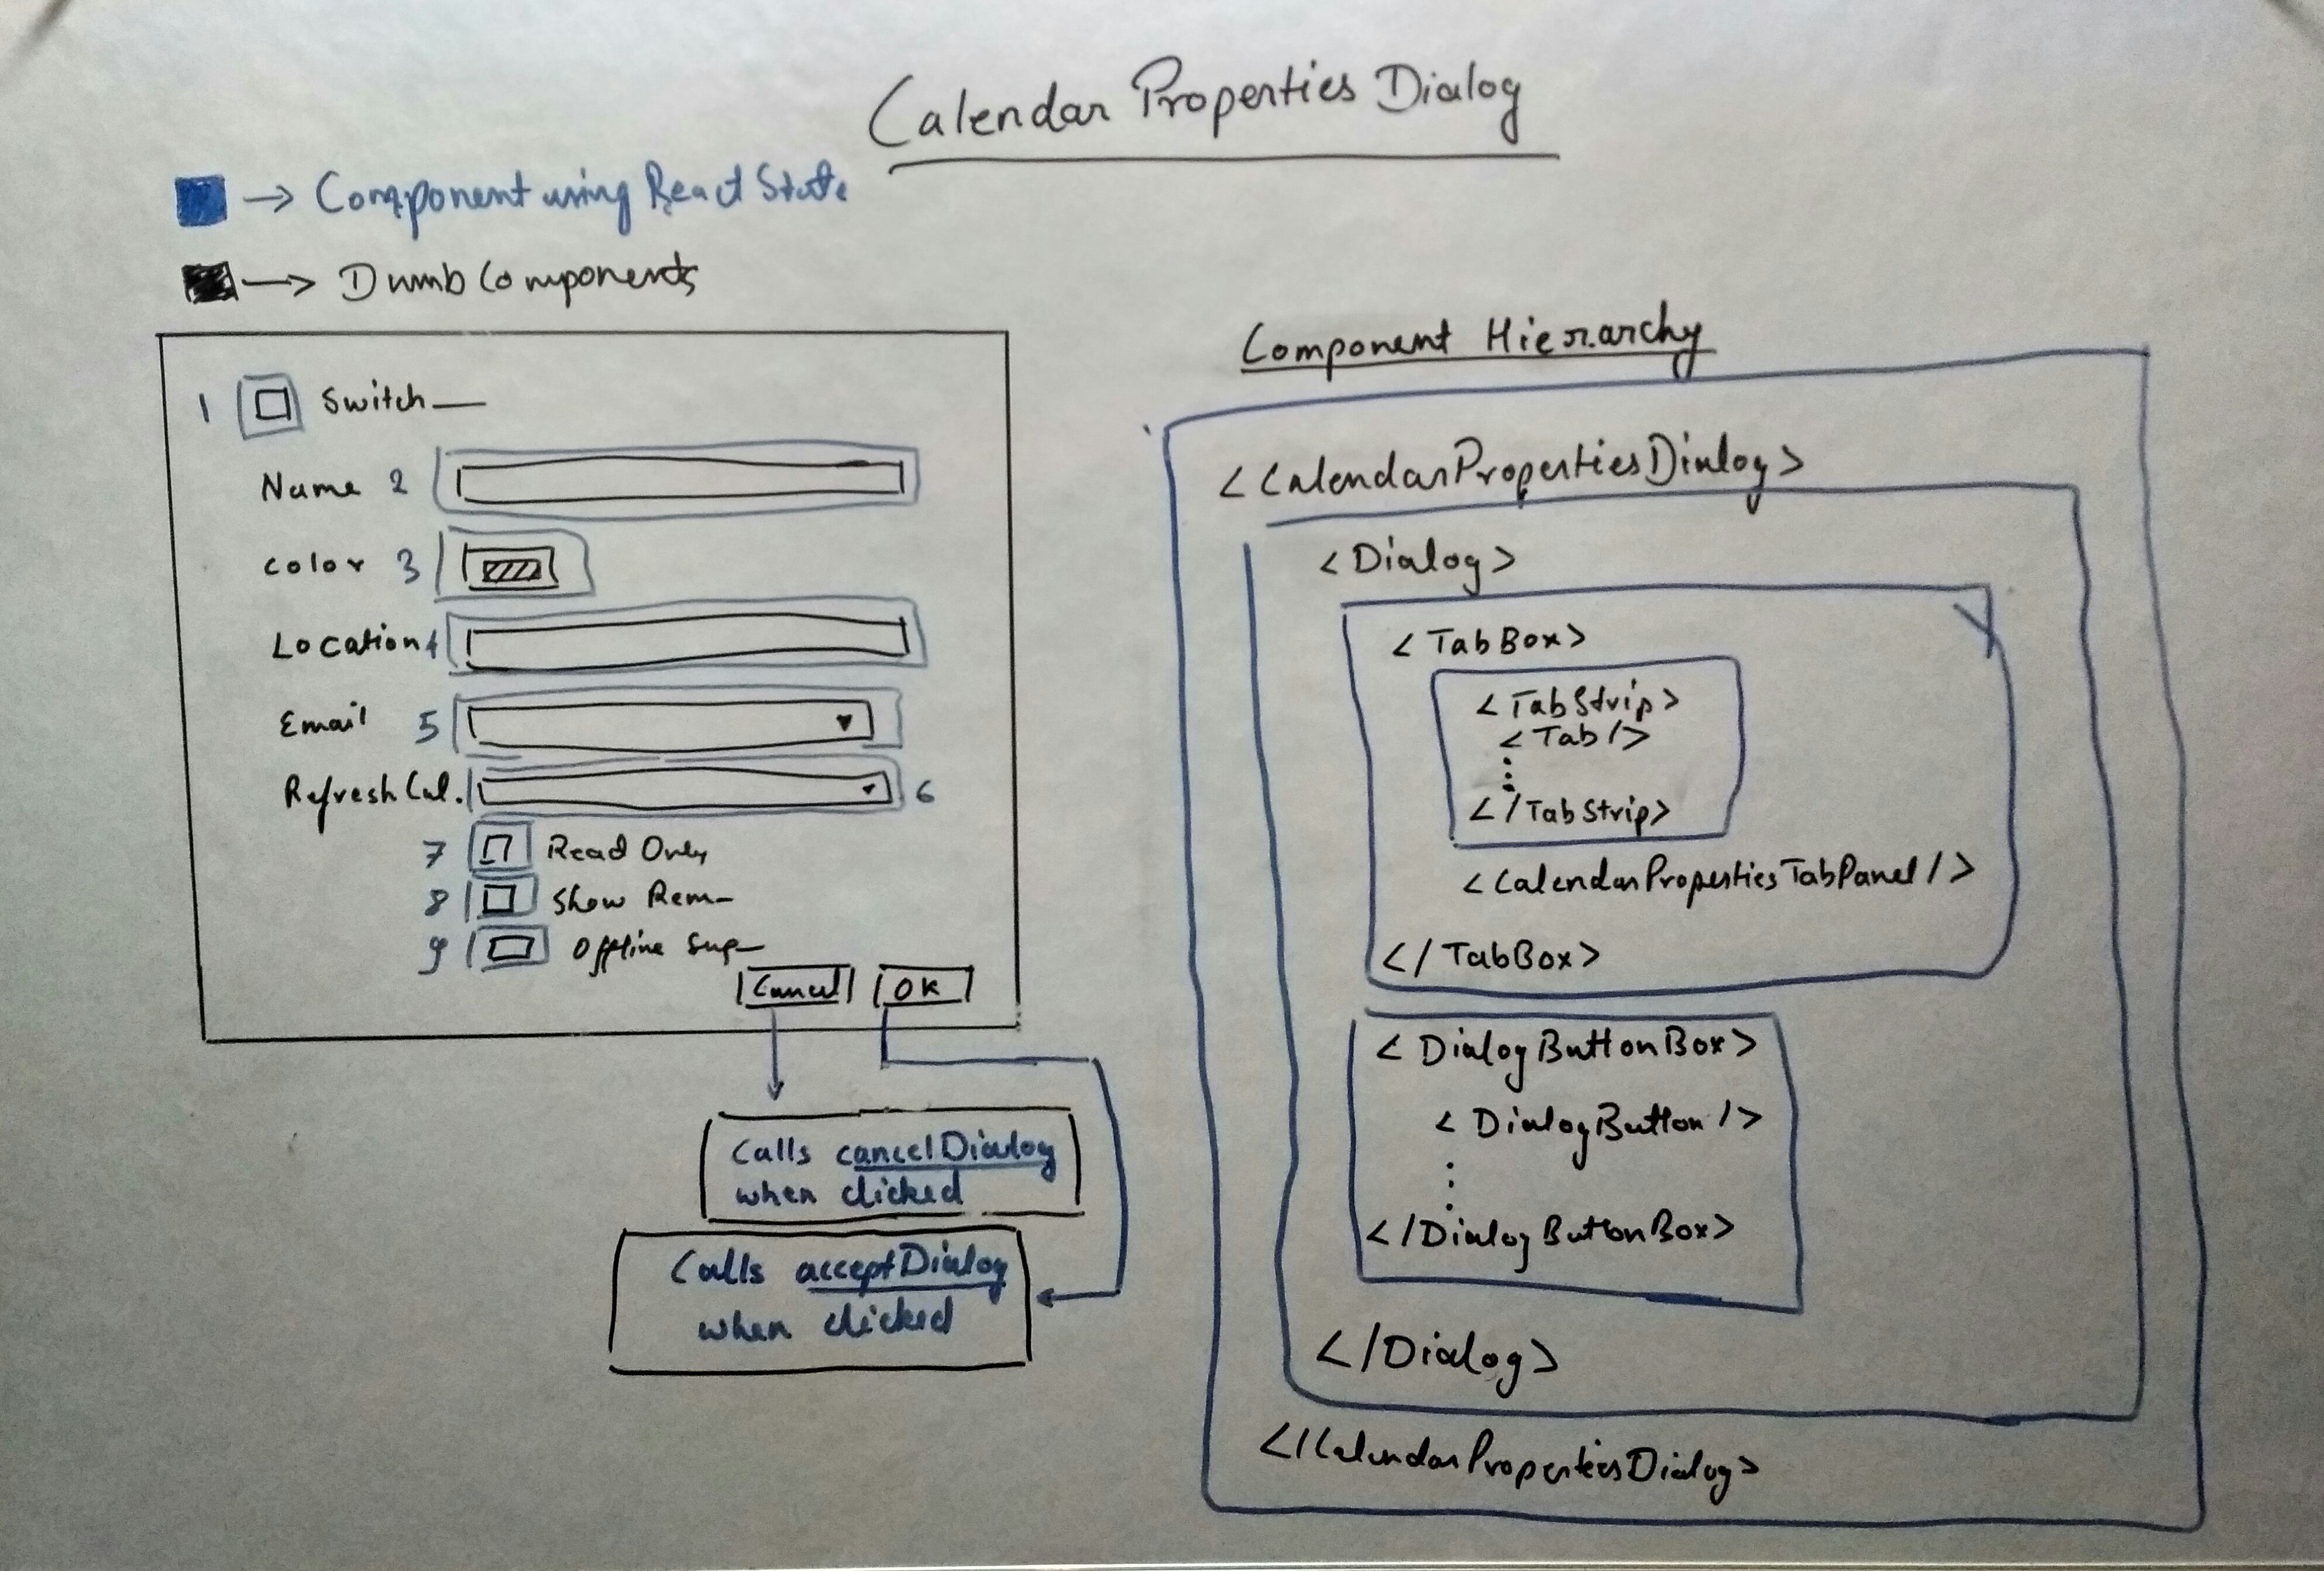 Calendar Properties Dialog
→ Component using React State
→ Dumb Components
1 Switch
Name 2
Color 3
Location 4
Email 5
Refresh Cal. 6
7 Read Only
8 Show Rem
9 Offline Sup
Cancel OK
Calls cancelDialog
when clicked
Calls acceptDialog
when clicked
Component Hierarchy
<CalendarPropertiesDialog>
<Dialog>
<TabBox>
<TabStrip>
<Tab/>
</TabStrip>
<CalendarPropertiesTabPanel/>
</TabBox>
<DialogButtonBox>
<DialogButton/>
</DialogButtonBox>
</Dialog>
</CalendarPropertiesDialog>